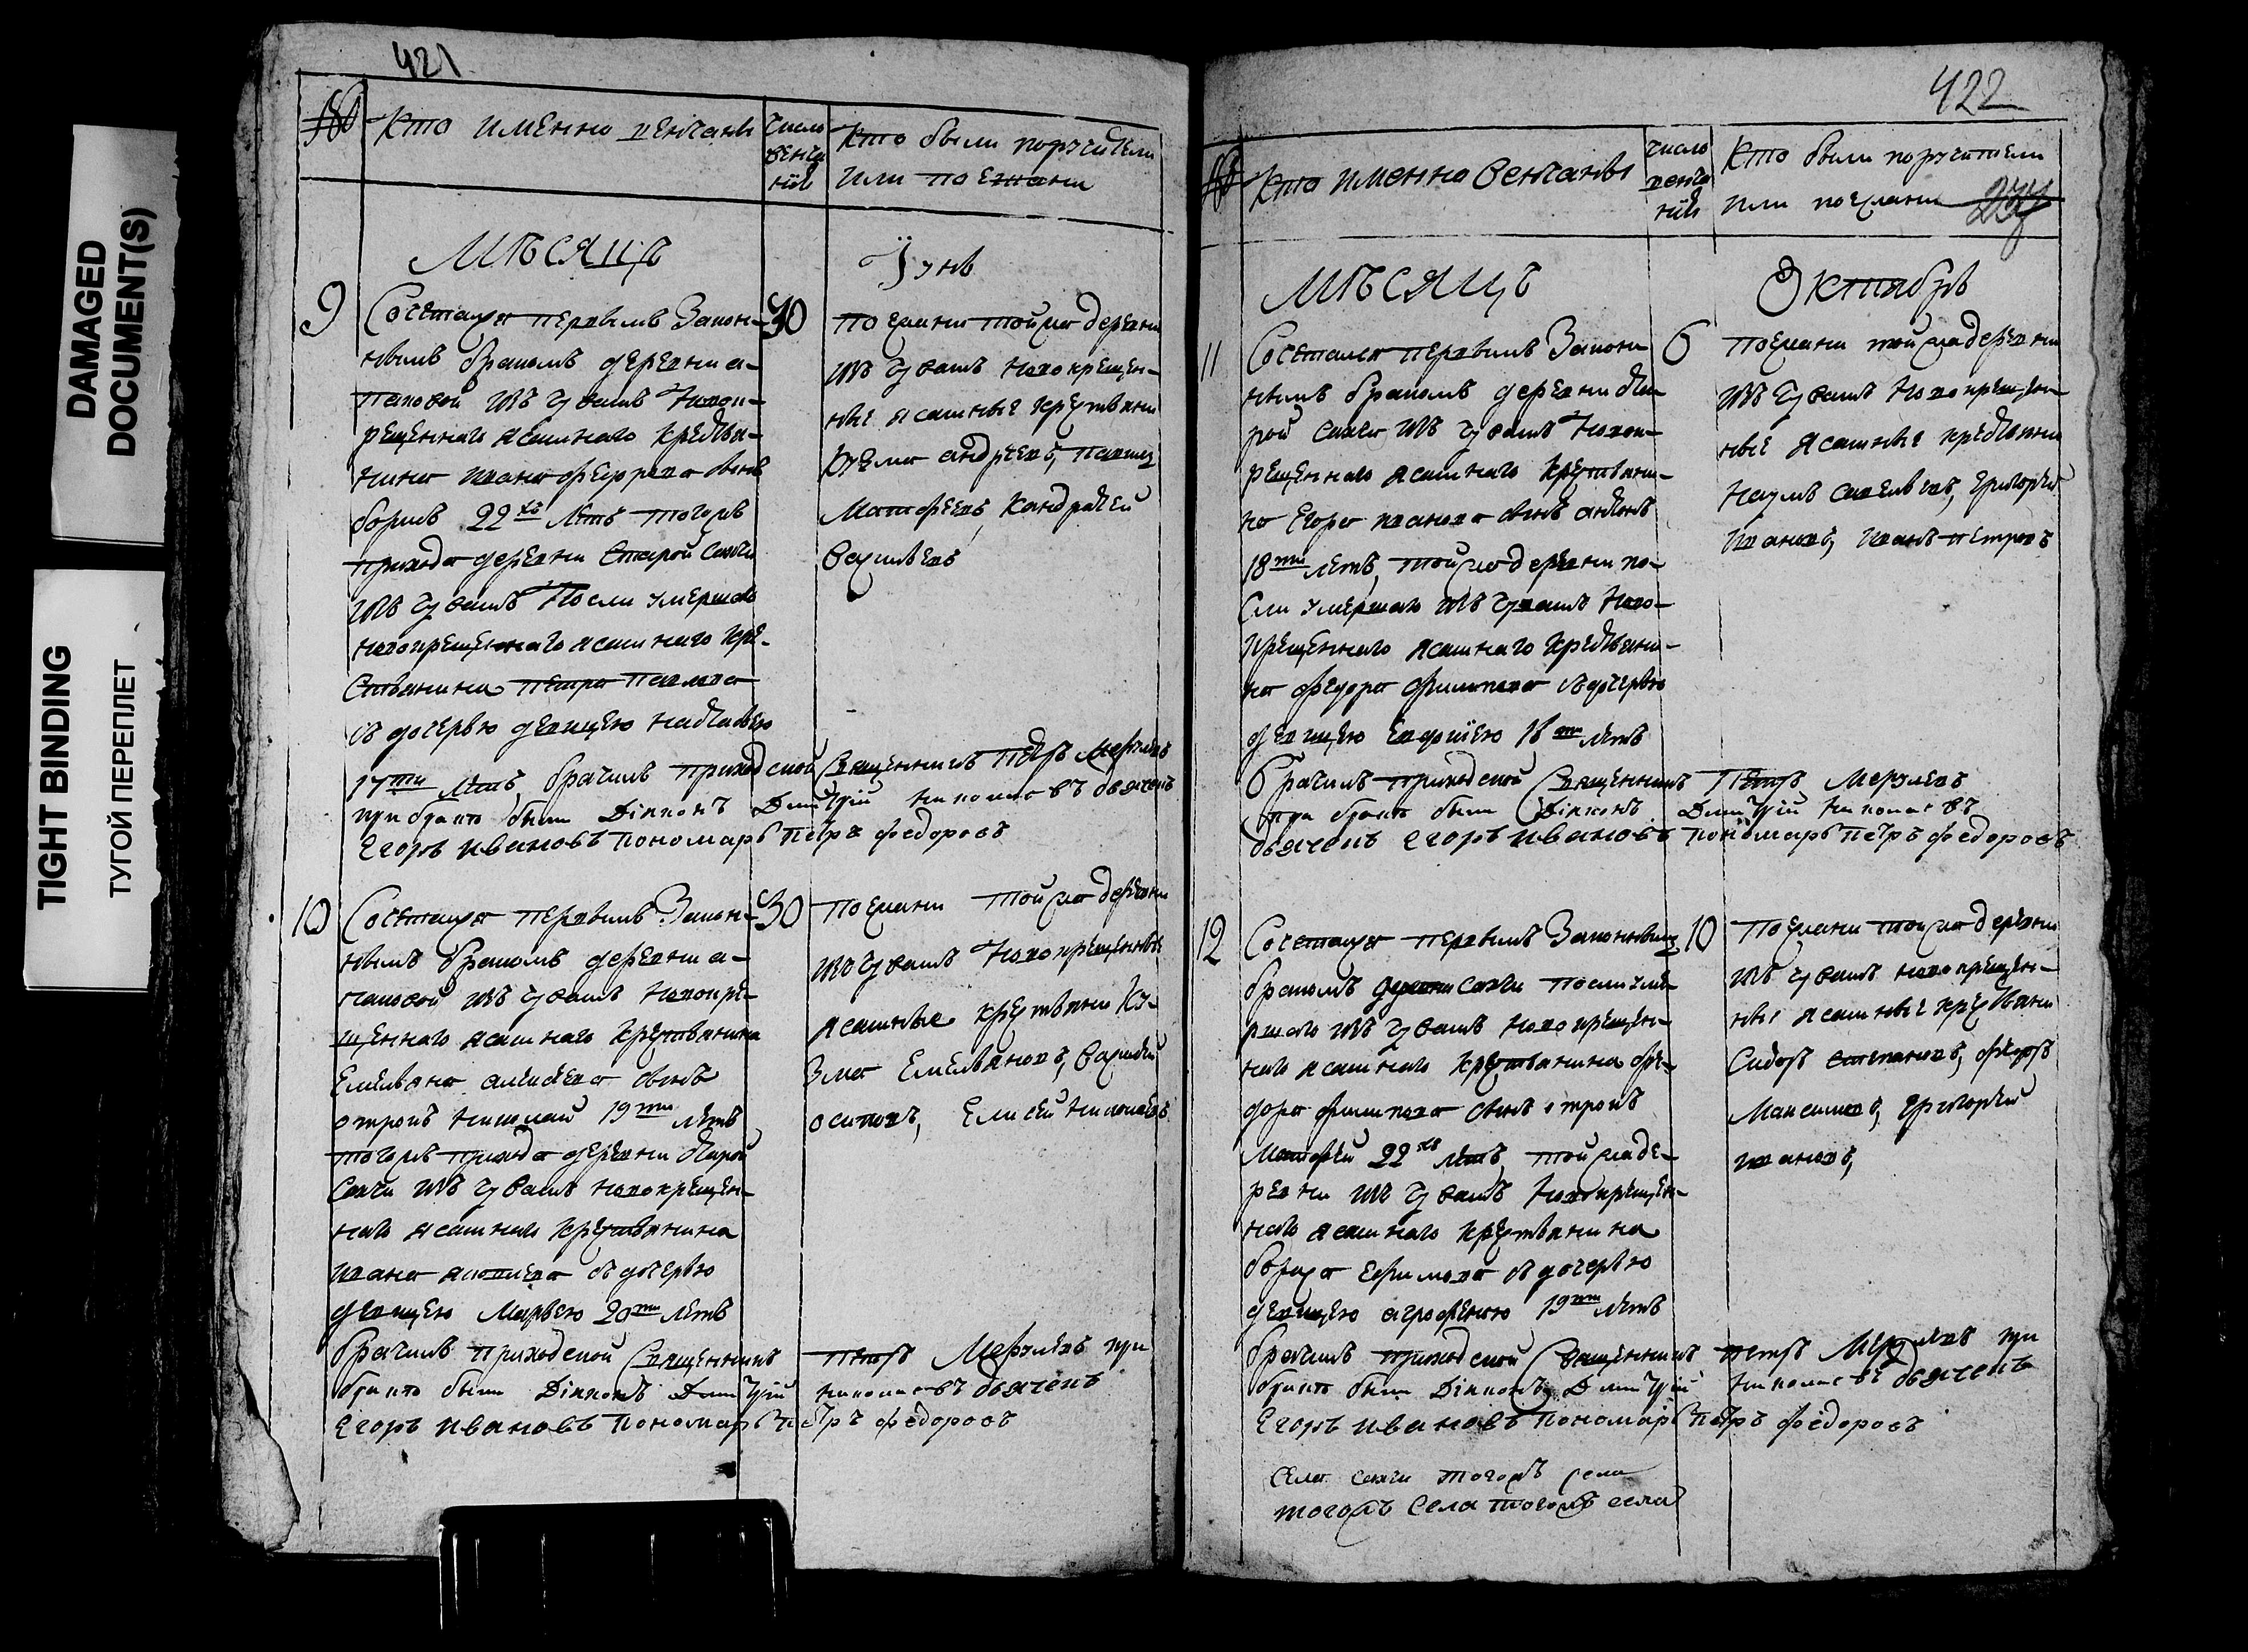 DAMAGED
DOCUMENT(S)
TIGHT BINDING
ТУГОЙ ПЕРЕПЛЕТ
421
№ Кто именно венчаны
число
венча
ніѧ
Кто были поручители
или поезжани
Мѣсяцъ Іунь
9 Сочетался первымъ закон-
нымъ бракомъ деревни а-
наковой изъ чувашъ новок-
рещеннаго ясашнаго кресья-
нина Ивана сынъ
борисъ 22хъ летъ тогожъ
прихода деревни Старой Сахчи
изъ чувашъ После умершаго
новокрещеннаго ясашнаго кре-
стьянина Петра Павлова
съ дочерью девицею Настасьею
17ти летъ, брачилъ приходской Священникъ Петръ
при бракѣ были Діяконъ Димитрій Николаевъ дьячекъ
Егоръ Ивановъ Пономарь Петръ Федоровъ
30
Поезжани той же деревни
изъ чувашъ новокрещен-
ные ясашные крестьяни
Кузма андреевъ, Павил
Матфеевъ, Кандратей
Васильевъ
10 Сочетался первымъ Закон-
нымъ бракомъ деревни а-
наковой изъ чувашъ новокре-
щеннаго ясашнаго крестьянина
Емельяна алексеева сынъ
отрокъ Николай 19ти летъ
тогожъ прихода деревни Старой
Сахчи изъ чувашъ новокрещен-
наго ясашнаго крестьянина
Ивана Яковлева съ дочерью
девицею Марьею 20ти летъ
брачилъ приходской Священникъ Петръ при
бракѣ были Діяконъ Димитрій Николаевъ дьячекъ
Егоръ Ивановъ Пономарь Петръ Федоровъ
30
Поезжани той же деревни
изъ чувашъ новокрещенные
ясашные крестьяни Ку-
зма Емельяновъ, Василей
осиповъ, Елисей Николаевъ
422
№ Кто именно венчаны
число
венча
ніѧ
Кто были поручители
или поезжани
Мѣсяцъ Октябрь
11 Сочетался первымъ Закон
нымъ бракомъ деревни Ста
рой Сахчи изъ чувашъ новок-
рещеннаго ясашнаго крестьяни-
на Егора Иванова сынъ антонъ
18ти летъ, той же деревни по-
сли умершаго изъ чувашъ ново-
крещеннаго ясашнаго крестьяни-
на Федора Филипова съ дочерью
девицею Евдокіею 18ти летъ
Брачилъ приходской Священникъ Петръ
при бракѣ были Діяконъ Димитрій Николаевъ
дьячекъ Егоръ Ивановъ Пономарь Петръ Федоровъ
6
Поезжани той же деревни
изъ чувашъ новокрещен-
ные ясашные крестьяни
Наумъ Савельевъ, Григорей
Ивановъ, Иванъ Петровъ
12 Сочетался первымъ Законнымъ
бракомъ деревни Сахчи посли уме-
ршаго изъ чувашъ новокрещен-
наго ясашнаго крестьянина Фе-
дора Филипова сынъ отрокъ
Матфей 22хъ летъ, той же де-
ревни изъ чувашъ новокрещен-
наго ясашнаго крестьянина
бориса Ефимова съ дочерью
девицею аграфеною 19ти летъ
брачилъ приходской Священникъ Петръ при
бракѣ были Діяконъ Димитрій Николаевъ дьячекъ
Егоръ Ивановъ Пономарь Петръ Федоровъ
10
Поезжани той же деревни
изъ чувашъ новокрещен-
ные ясашные крестьяни
Сидоръ Степановъ, Федоръ
Максимовъ, Григорей
Ивановъ,
Села Сахчи тогожъ села
тогожъ Села тогожъ села